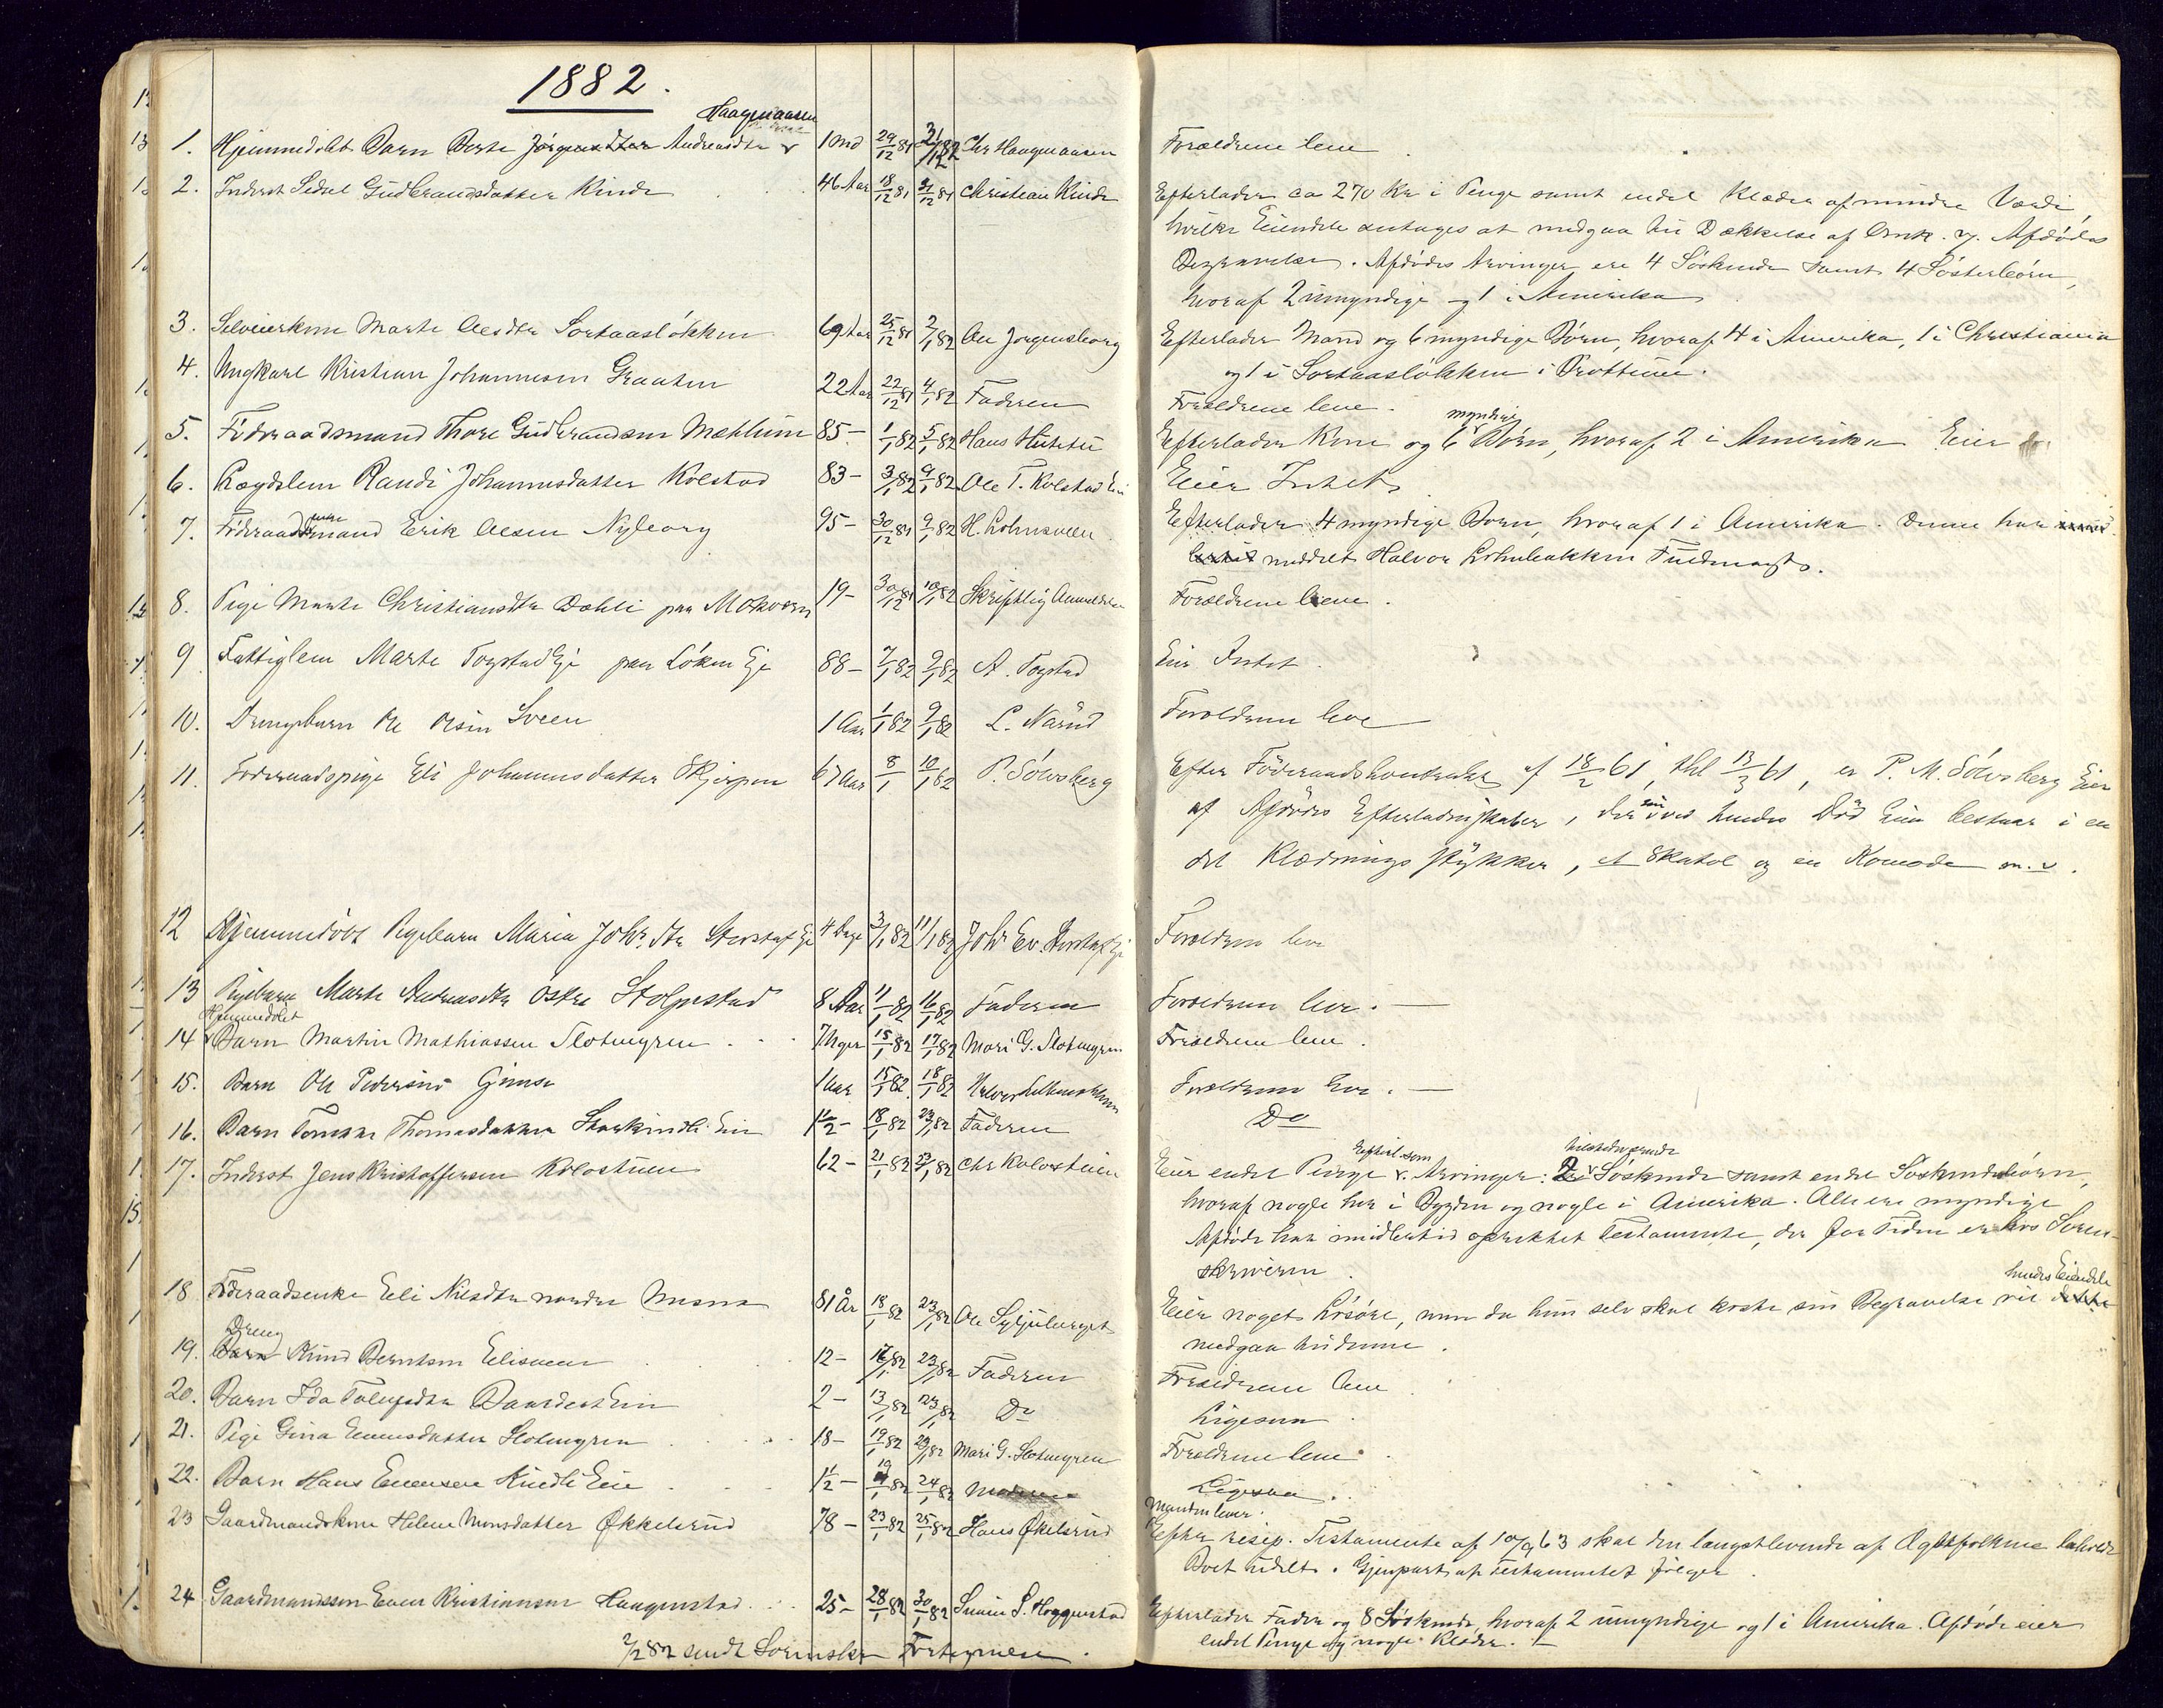 1882.
Haagenaasen
1. Hjemmedøbt Barn Berte Jörgensdtter Andreasdtr v 1 Md 29/12 81 31/12 82 Chr Haagenaasen Forældrene leve
2. Inderst Sidsel Gudbrandsdatter Kinde 46 Aar 18/12 81 31/12 81 Christian Kinde Efterlader ca 270 Kr i Penge samt endel Klæder af mindre Værdi,
hvilke Eiendele antages at medgaa til Dækkelse af Omk. v. Afdødes
Begravelse. Afdødes Arvinger ere 4 Söskende samt 4 Sösterbörn,
hvoraf 2 umyndige og 1 i Amerika
3. Selveierkone Marte Olesdtr Sortaaslökken 69 Aar 25/12 81 2/1 82 Ole Jörgensborg Efterlader Mand og 6 myndige Börn, hvoraf 4 i Amerika, 1 i Christiania
og 1 i Sortaaslökken i Brøttum.
4. Ungkarl Kristian Johannesen Graaten 22 Aar 22/12 81 4/1 82 Faderen Forældrene leve.
myndige
5. Föderaadsmand Thore Gudbrandsen Mæhlum 85 – 1/1 82 5/1 82 Hans Efterlader Kone og 6 Börn, hvoraf 2 i Amerika Eier
6. Lægdslem Randi Johannesdatter Kolstad 83 – 3/1 82 9/1 82 Ole T. Kolstad Eie Eier Intet
7. Föderaadsmand Erik Olesen Nyborg 95 – 30/12 81 9/1 82 H. Lohnsveen Efterlader 4 myndige Börn, hvoraf 1 i Amerika. Denne har
meddelt Halvor Lohnbakken Fuldmagt.
8. Pige Marte Christiansdtr Dæhli paa Mokværn 19 – 30/12 81 10/1 82 Skriftlig Anmeldelse Forældrene leve.
9 Fattiglem Marte Togstad Eje paa Löken Eje 88 – 7/1 82 9/1 82 A. Togstad Eier Intet.
10. Drengebarn Ole Olsen Sveen 1 Aar 1/1 82 9/1 82 L. Narud Forældrene leve
11. Föderaadspige Eli Johannesdatter Skjerpen 67 Aar 8/1 10/1 82 P. Sölvsberg Efter Föderaadskontrakt af 18/2 61, thl 13/3 61, er P. M. Sölvsberg Eier
af Afdödes Efterladenskaber, der som ved hendes Död kun bestaar i en
del Klædningsstykker, et Skatol og en Komode m. v.
12 Hjemmedöbt Pigebarn Maria Joh. dtr Storstaf Eje 4 Dage 3/1 82 11/1 82 Joh. Ev. Storstaf Eje Forældrene leve
13 Pigebarn Marte Andreasdtr östre Stolpestad 8 Aar 11/1 82 16/1 82 Faderen Forældrene leve. —
Hjemmedöbt
14 v Barn Martin Mathiassen Slotmyren 7 Uger 15/1 82 17/1 82 Mari G. Slotmyren Forældrene leve.
15. Barn Ole Pedersen Gjense 1 Aar 15/1 82 18/1 82 Forældrene leve. —
16. Barn Tomine Thomasdatter Storkindli Eie 1 1/2 – 18/1 82 23/1 82 Faderen Do
Eftersom tilstedeværende
17. Inderst Jens Kristoffersen Kolostuen 62 – 21/1 82 23/1 82 Chr Kolostuen Eier endel Penge v. Arvinger: 2 v Söskende samt endel Söskendebörn,
hvoraf nogle her i Bygden og nogle i Amerika. Alle ere myndige
Afdøde har imidlertid oprettet Testamente, der for Tiden er hos Soren-
skriveren.
hendes Eiendele
18 Föderaadsenke Eli Nilsdtr nordre Mesna 81 År 18/1 82 23/1 82 Ole Syljuberget Eier noget Lösöre, men da hun selv skal koste sin Begravelse vil dette
medgaa hertil.
Dreng
19. Barn Knud Berntsen Eliseveen 12 – 17/1 82 23/1 82 Faderen Forældrene leve
20. Barn Ida Tolvsdtr Baardset Eie 2 – 13/1 82 23/1 82 Do Ligesaa
21. Pige Gina Evensdatter Slotmyren 18 – 19/1 82 23/1 82 Mari G. Slotmyren Forældrene leve.
22. Barn Hans Evensen Kindli Eie 1 1/2 – 19/1 82 24/1 82 Moderen Ligesaa.
Manden lever.
23 Gaardmandskone Helene Monsdatter Økkelsrud 78 – 23/1 82 25/1 82 Hans Økelsrud Efter resip. Testamente af 10/9 63 skal den længstlevende af Ægtefolkene beholde
Boet udelt. Gjenpart af Testamentet følger.
24 Gaardmandssön Even Kristiansen Haagenstad 25 – 28/1 82 30/1 82 Simen S. Hoggenstad Efterlader Fader og 8 Söskende, hvoraf 2 umyndige og 1 i Amerika. Afdøde eier
endel Penge og nogle Klæder. —
2/2 82 sendt Sorenskr Fortegnelse.